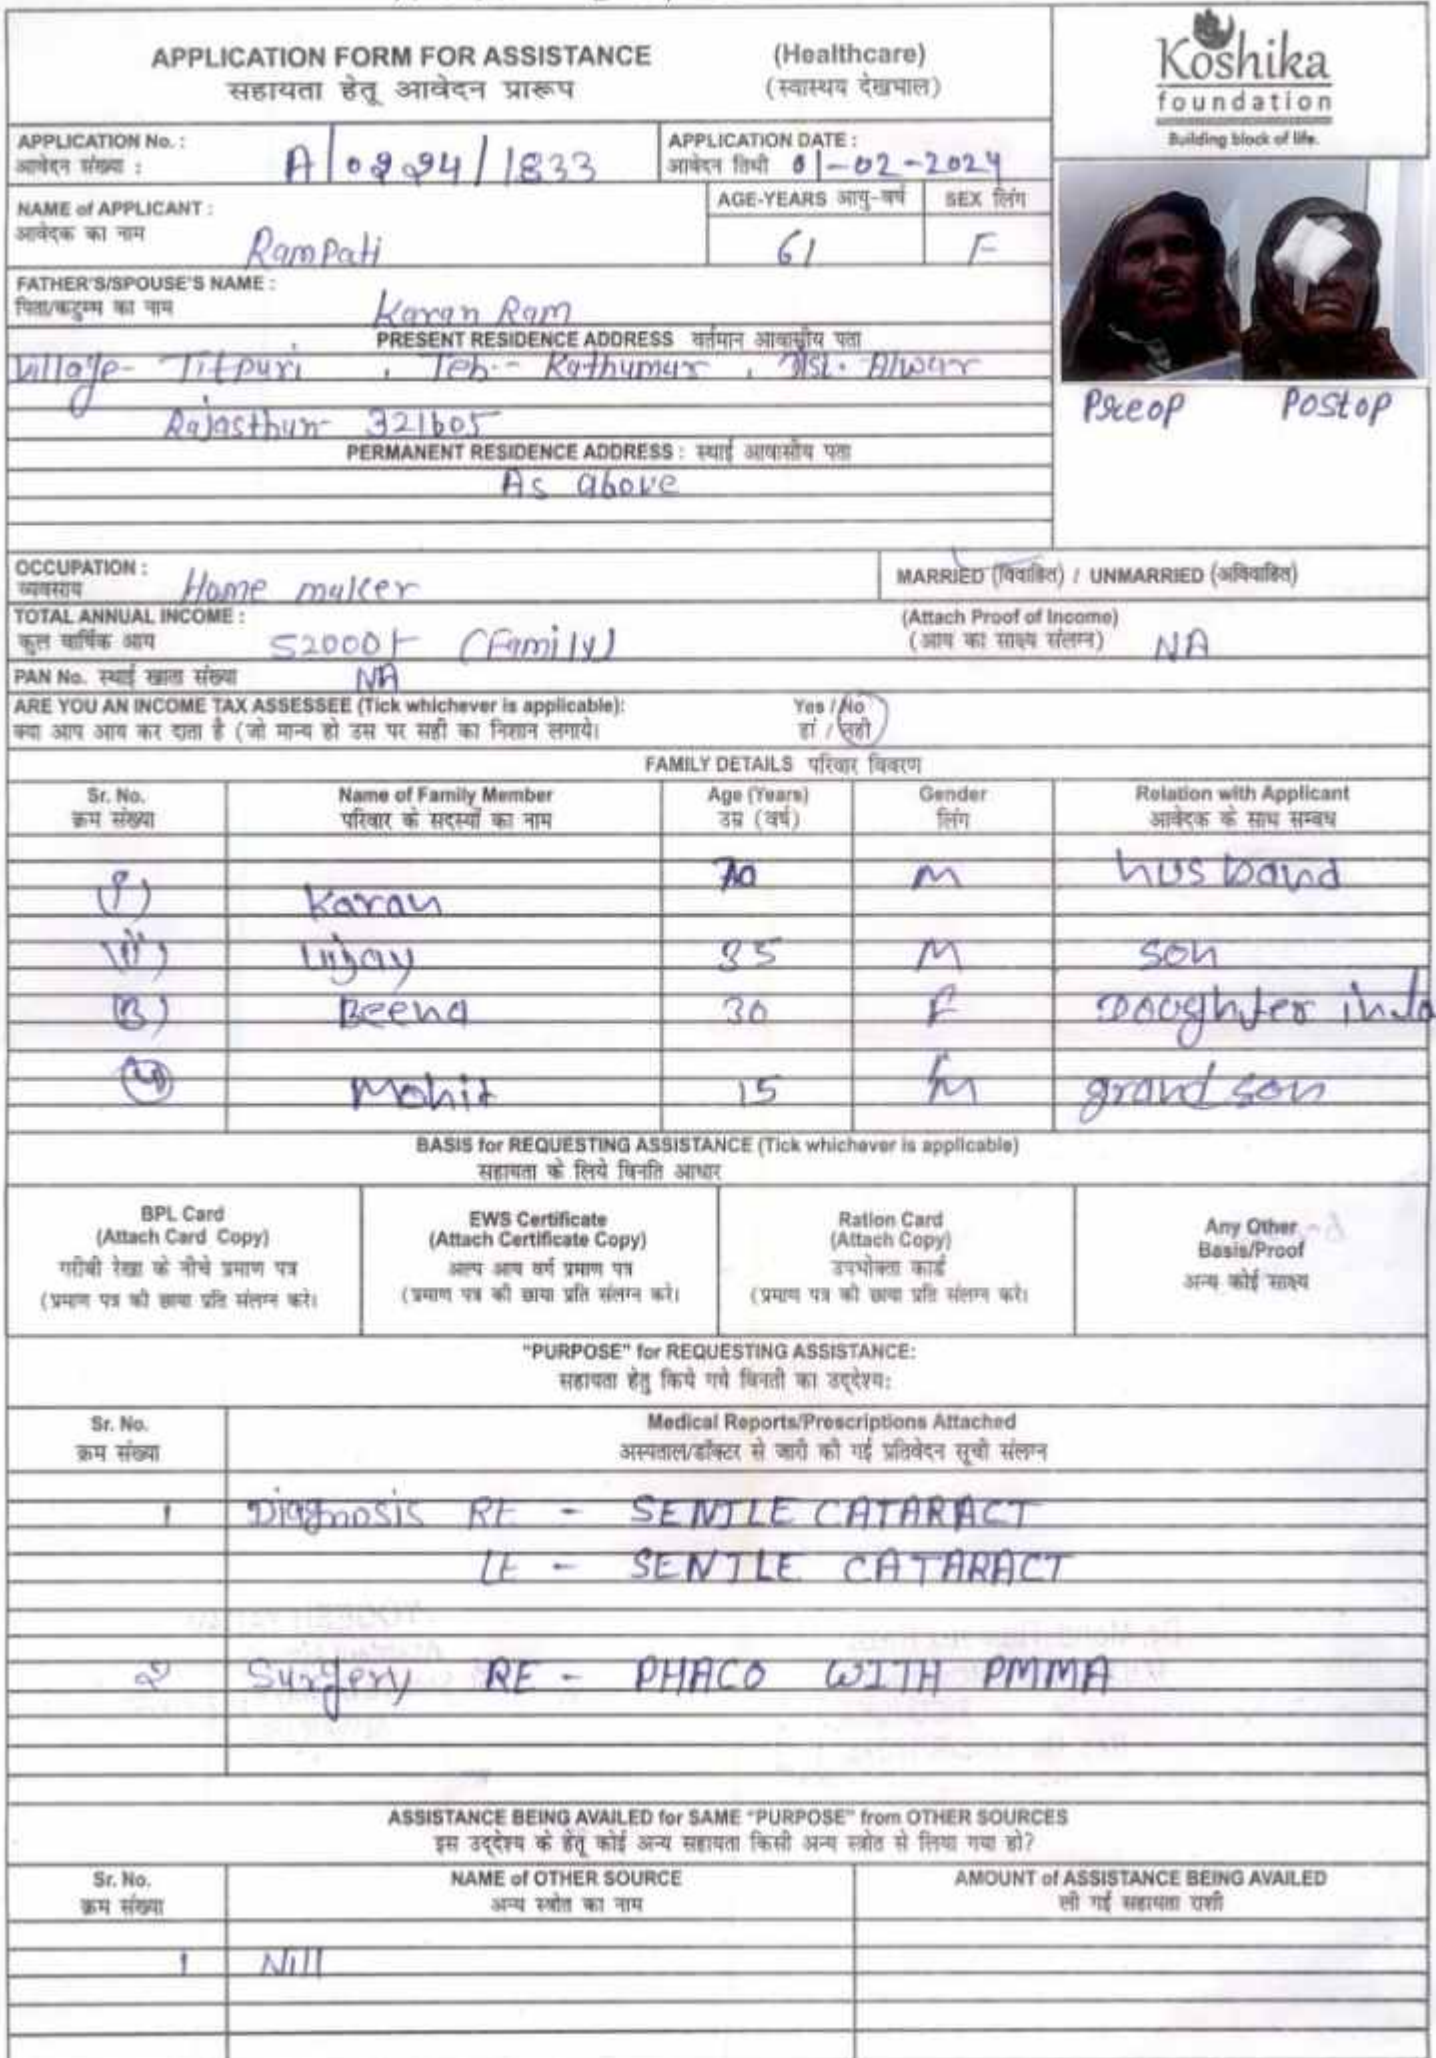 APPLICATION FORM FOR ASSISTANCE (Healthcare)
सहायता हेतू आवेदन प्रारूप (स्वास्थय देखभाल)
Koshika
foundation
Building block of life.
APPLICATION No. :
आवेदन संख्या : A/0224/1833
APPLICATION DATE :
आवेदन तिथी 01-02-2024
NAME of APPLICANT :
आवेदक का नाम Rampati
AGE-YEARS आयु-वर्ष 61
SEX लिंग F
FATHER'S/SPOUSE'S NAME :
पिता/कटुम्ब का नाम Karan Ram
PRESENT RESIDENCE ADDRESS वर्तमान आवासीय पता
Village- Titpuri , Teh.- Kathumur , Alwar
Rajasthun- 321605
PERMANENT RESIDENCE ADDRESS : स्थाई आवासीय पता
As above
Preop Postop
OCCUPATION :
व्यवसाय Home maker
MARRIED (विवाहित) / UNMARRIED (अविवाहित)
TOTAL ANNUAL INCOME :
कुल वार्षिक आय 52000/- (Family)
(Attach Proof of Income)
(आय का साक्ष्य संलग्न) NA
PAN No. स्थाई खाता संख्या NA
ARE YOU AN INCOME TAX ASSESSEE (Tick whichever is applicable): Yes / No
क्या आप आय कर दाता है (जो मान्य हो उस पर सही का निशान लगाये। हां / नही
FAMILY DETAILS परिवार विवरण
Sr. No. Name of Family Member Age (Years) Gender Relation with Applicant
क्रम संख्या परिवार के सदस्यों का नाम उम्र (वर्ष) लिंग आवेदक के साथ सम्बध
(1) Karan 70 M husband
(11) Vijay 35 M son
(3) Beena 30 F Daughter in la
(4) Mohit 15 M grand son
BASIS for REQUESTING ASSISTANCE (Tick whichever is applicable)
सहायता के लिये विनति आधार
BPL Card
(Attach Card Copy)
गरीबी रेखा के नीचे प्रमाण पत्र
(प्रमाण पत्र की छाया प्रति संलग्न करे।
EWS Certificate
(Attach Certificate Copy)
अल्प आय वर्ग प्रमाण पत्र
(प्रमाण पत्र की छाया प्रति संलग्न करे।
Ration Card
(Attach Copy)
उपभोक्ता कार्ड
(प्रमाण पत्र की छाया प्रति संलग्न करे।
Any Other
Basis/Proof
अन्य कोई साक्ष्य
"PURPOSE" for REQUESTING ASSISTANCE:
सहायता हेतु किये गये विनती का उद्देश्य:
Sr. No. Medical Reports/Prescriptions Attached
क्रम संख्या अस्पताल/डॉक्टर से जारी की गई प्रतिवेदन सूची संलग्न
1 Diagnosis RE - SENILE CATARACT
LE - SENILE CATARACT
2 Surgery RE - PHACO WITH PMMA
ASSISTANCE BEING AVAILED for SAME "PURPOSE" from OTHER SOURCES
इस उद्देश्य के हेतू कोई अन्य सहायता किसी अन्य स्त्रोत से लिया गया हो?
Sr. No. NAME of OTHER SOURCE AMOUNT of ASSISTANCE BEING AVAILED
क्रम संख्या अन्य स्त्रोत का नाम ली गई सहायता राशी
1 Nill